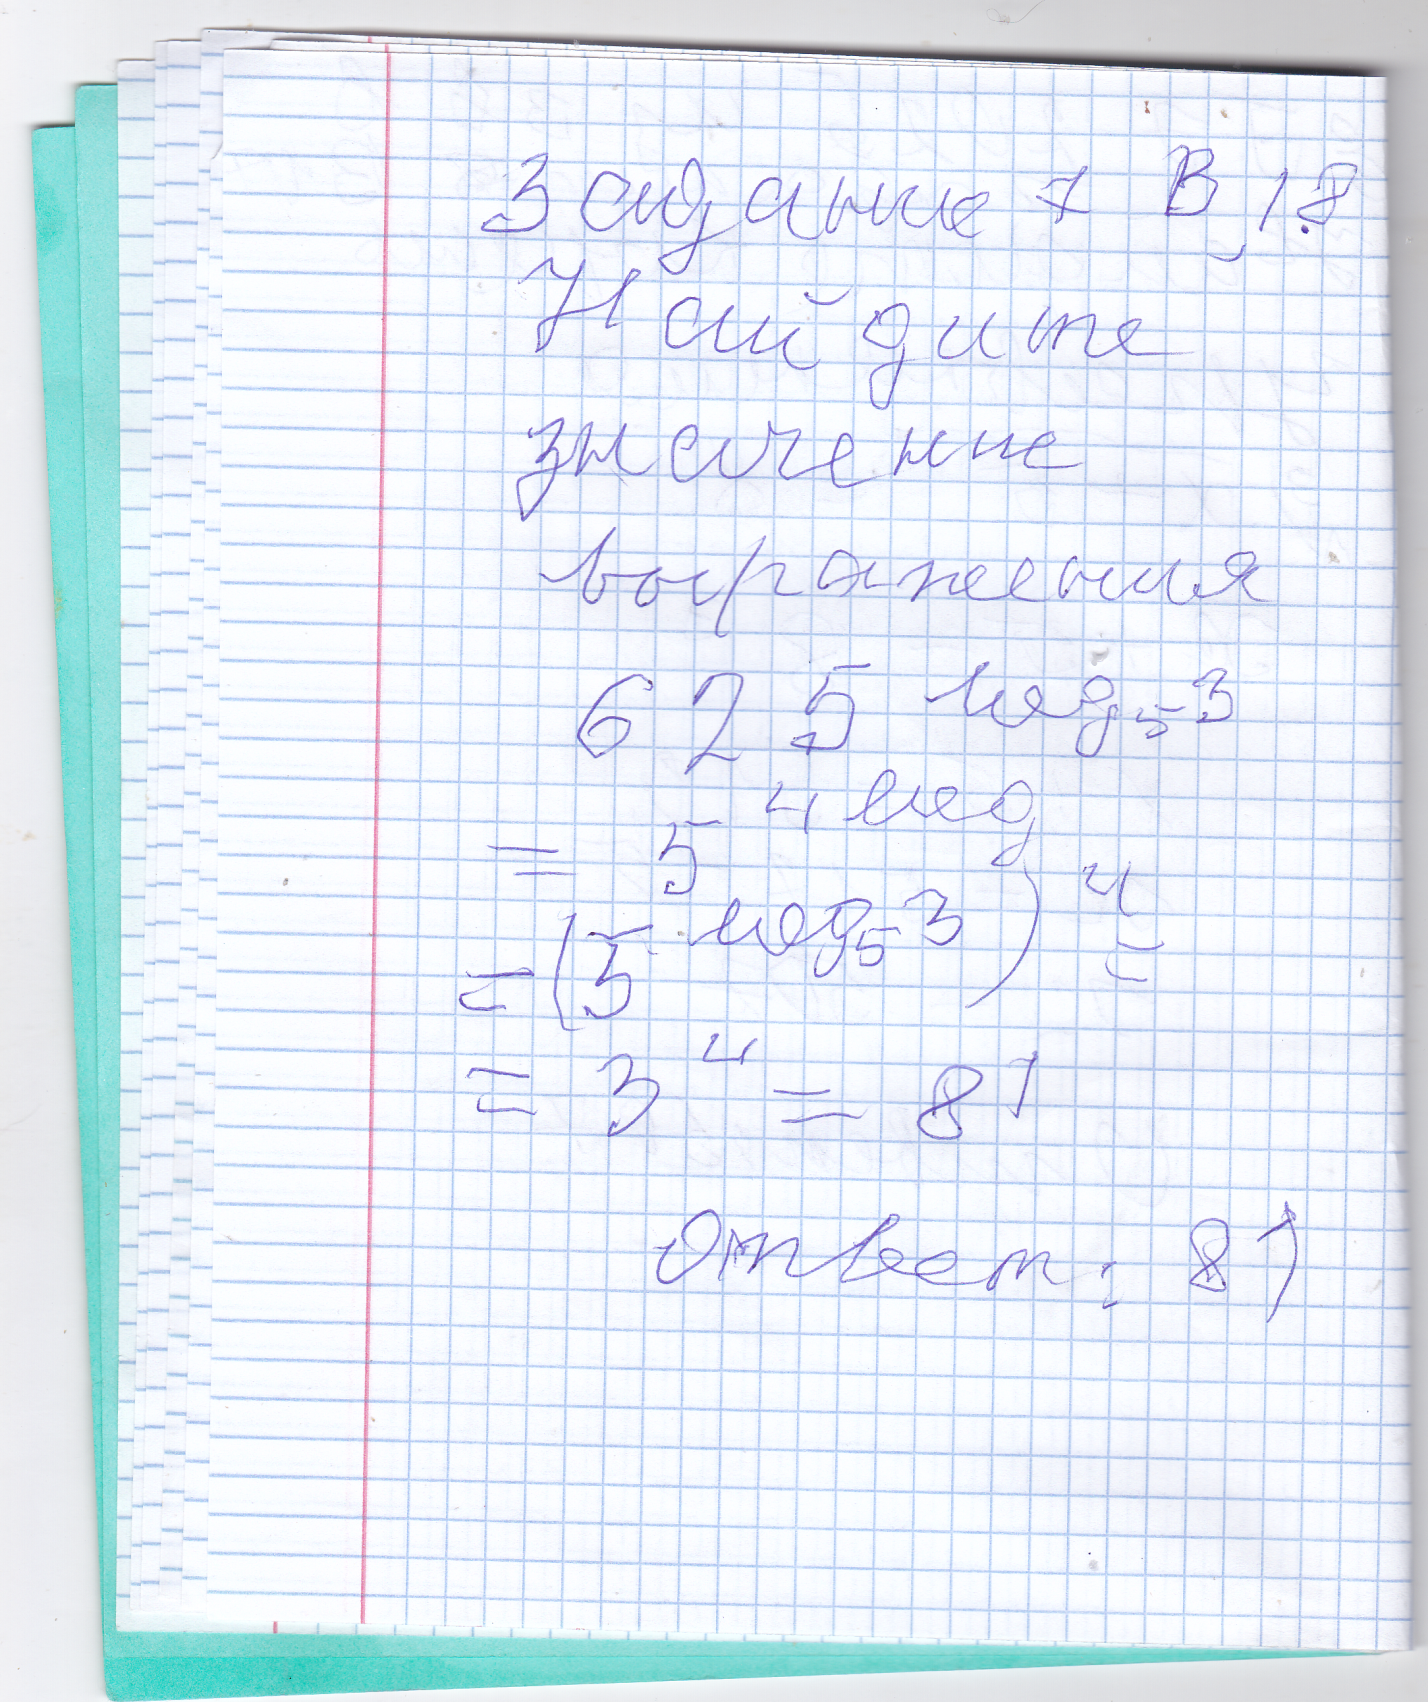 Задание 7 В. 18
Найдите
значение
выражения
625 log₅3
= 5 4 log
= (5 log₅3)⁴ =
= 3⁴ = 81
Ответ: 81